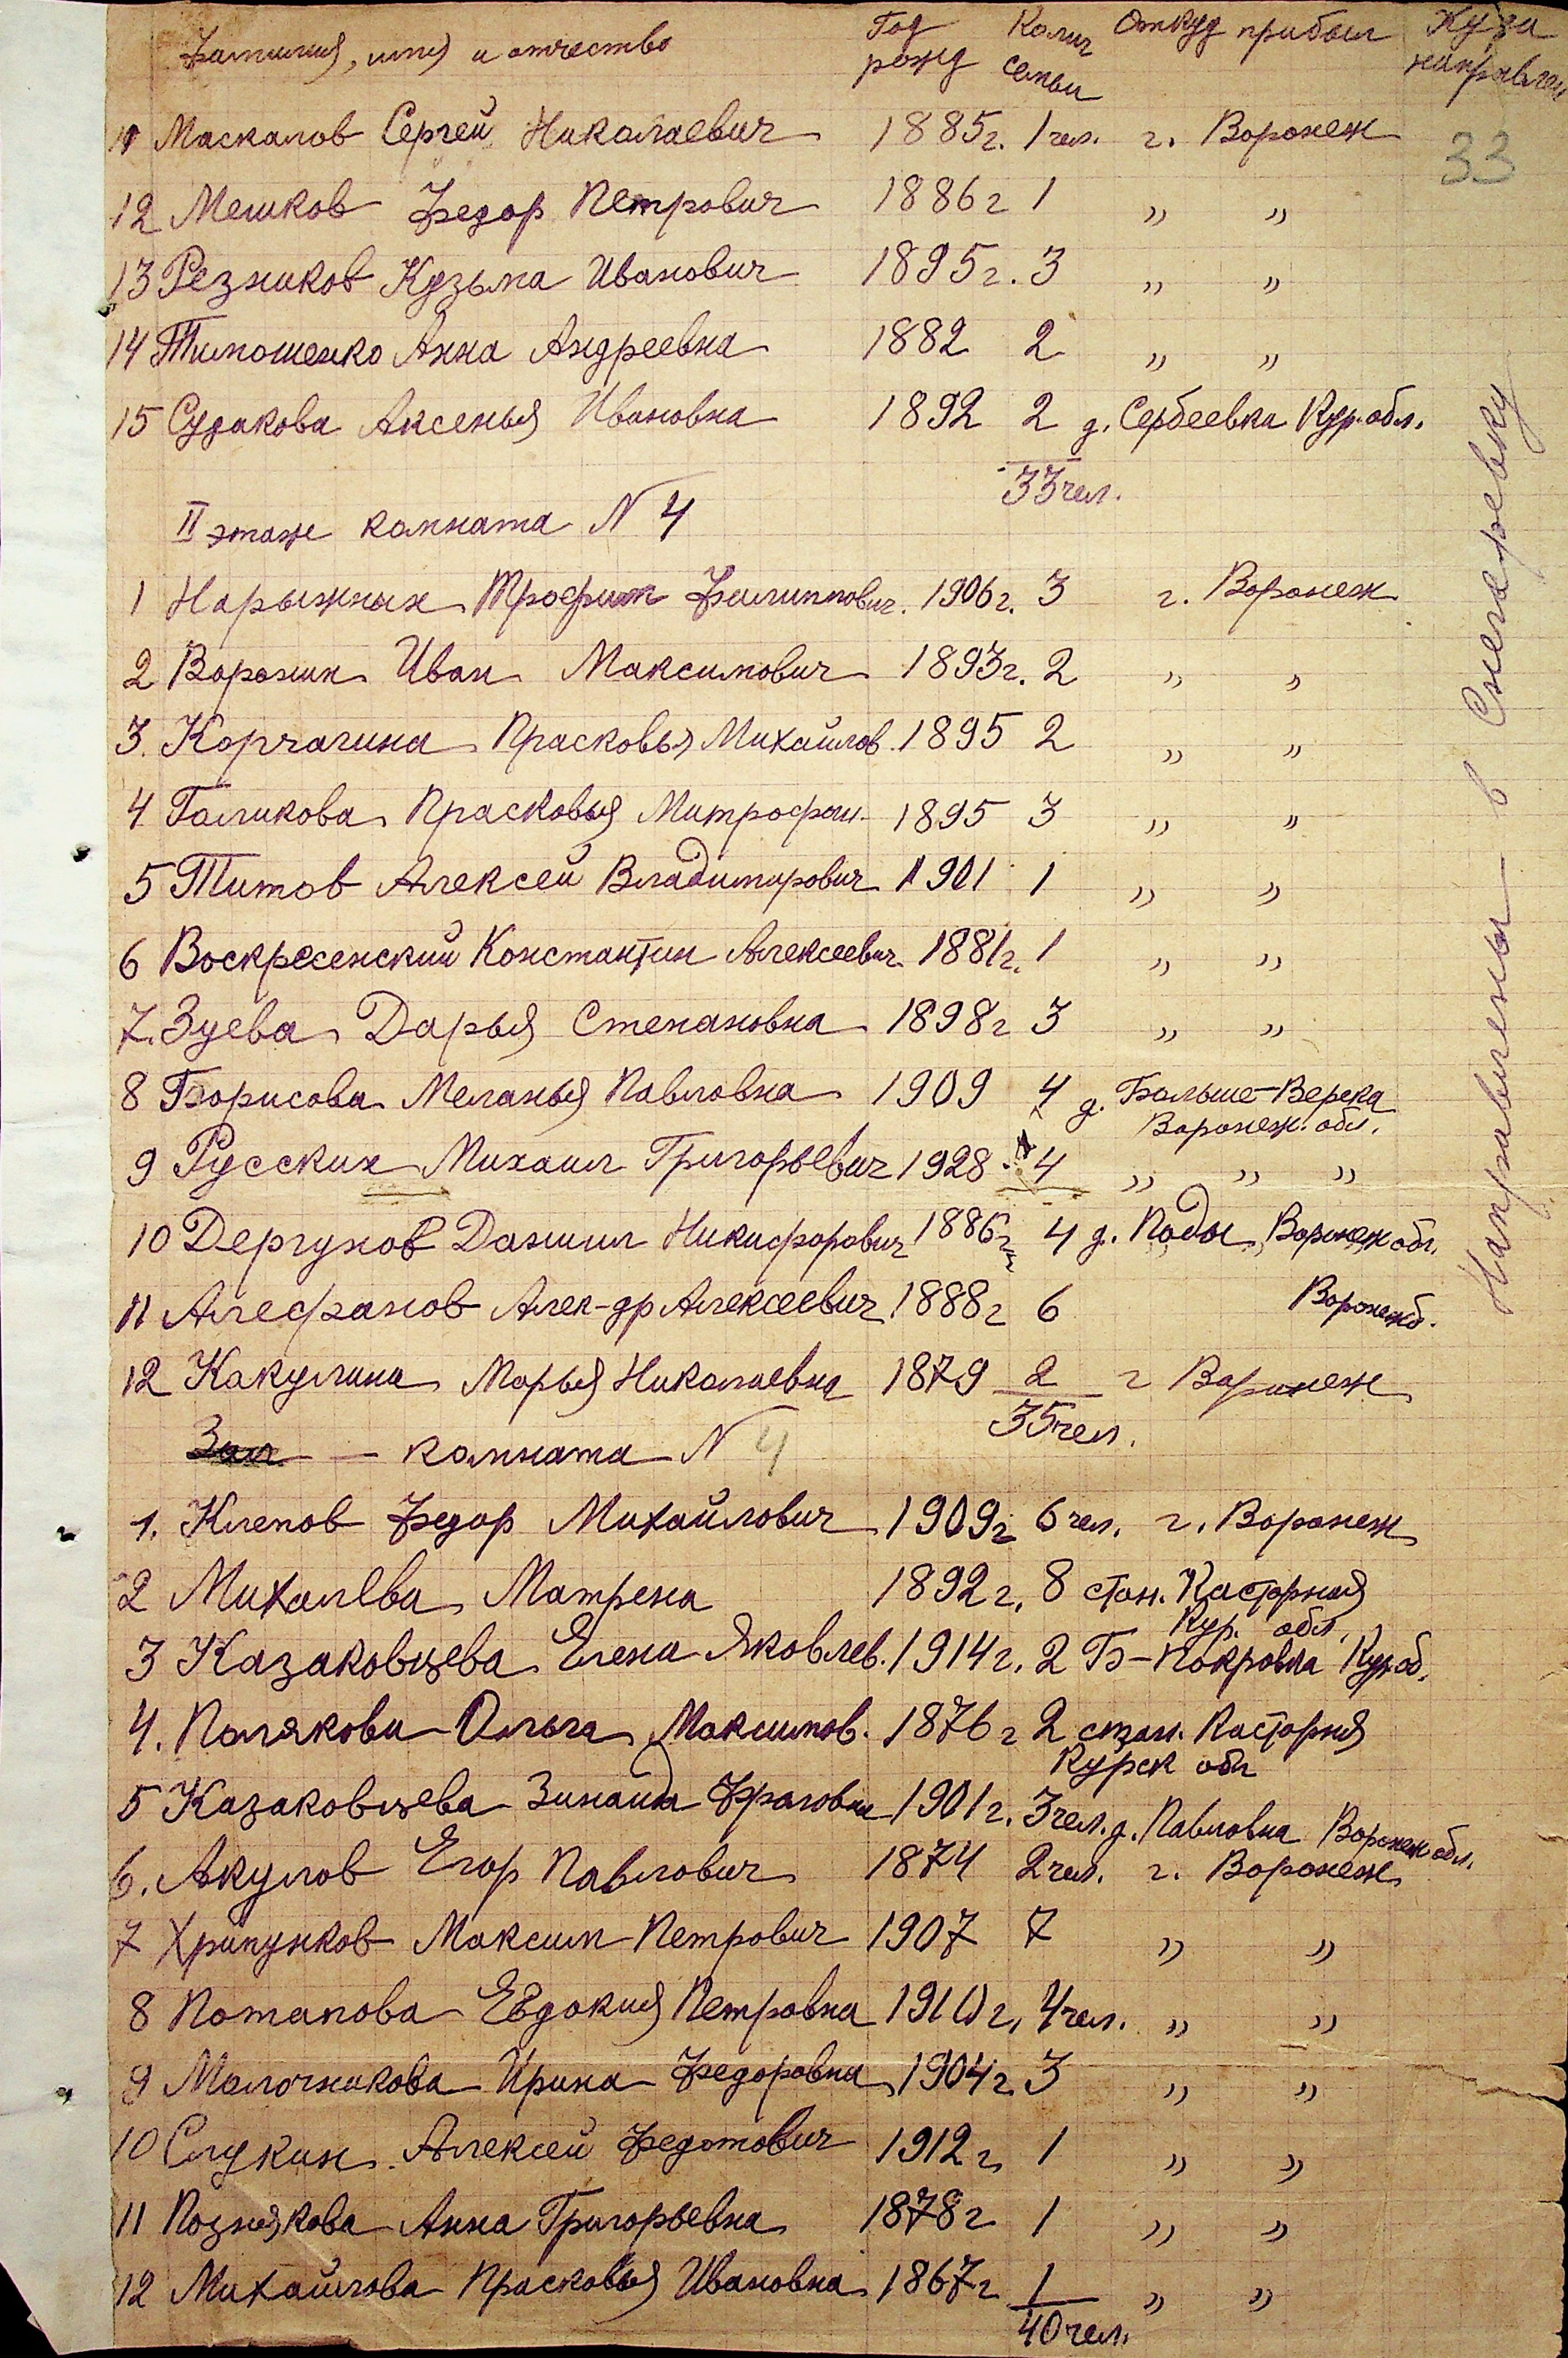 Фамилия, имя и отчество Год рожд Колич семьи Откуд прибыл Куда направлен
33
11 Маскалов Сергей Николаевич 1885г. 1 чел. г. Воронеж
12 Мешков Федор Петрович 1886г 1 " "
13 Резников Кузьма Иванович 1895г. 3 " "
14 Тимошенко Анна Андреевна 1882 2 " "
15 Судакова Аксенья Ивановна 1892 2 д. Сербеевка Кур. обл.
33 чел.
II этаж комната N 4
1 Нарыжных Трофим Филиппович. 1906г. 3 г. Воронеж
2 Воронин Иван Максимович 1893г. 2 " "
3. Корчагина Прасковья Михайлов. 1895 2 " "
4 Галикова Прасковья Митрофан. 1895 3 " "
5 Титов Алексей Владимирович 1901 1 " "
6 Воскресенский Константин Алексеевич. 1881г. 1 " "
7. Зуева Дарья Степановна 1898г 3 " "
8 Борисова Меланья Павловна 1909 4 д. Больше-Верека
Воронеж. обл.
9 Русских Михаил Григорьевич 1928. 4 " " "
10 Дергунов Даниил Никифорович 1886г 4 д. Поды Воронеж обл.
11 Алефанов Алек-др Алексеевич 1888г 6 Воронежо.
12 Какулина Марья Николаевна 1879 2 г Воронеж
35 чел.
Зал — комната N 4
1. Клепов Федор Михайлович 1909г 6 чел. г. Воронеж
2 Михалева Матрена 1892г. 8 стан. Касторная
Кур. обл.
3 Казаковцева Елена Яковлев. 1914г. 2 Б-Покровка Кур об.
4. Полякова Ольга Максимов. 1876г 2 стан. Касторня
Курск обл
5 Казаковцева Зинаида Фроловна 1901г. 3 чел. д. Павловка Воронеж обл.
6. Акулов Егор Павлович 1874 2 чел. г. Воронеж
7 Хрипунков Максим Петрович 1907 7 " "
8 Потапова Евдокия Петровна 1910г. 4 чел. " "
9 Молочникова Ирина Федоровна 1904г. 3 " "
10 Слукин Алексей Федотович 1912г 1 " "
11 Познякова Анна Григорьевна 1878г 1 " "
12 Михайлова Прасковья Ивановна 1867г 1 " "
40 чел.
Направлены в Снегаревку